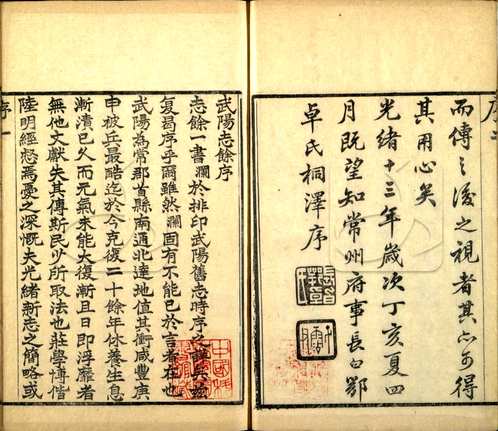 而傳之後之視者其亦可得
其用心矣
光緒十三年歲次丁亥夏四
月既望知常州府事長白鄂
卓氏桐澤序
武陽志餘序
志餘一書瀾於排印武陽舊志時序之詳矣茲
复曷序乎爾雖然瀾固有不能已於言者在也
武陽為常郡首縣南通北達地值其衝咸豐庚
申被兵最酷迄於今克復二十餘年休養生息
漸漬已久而元氣未能大復漸且日即浮靡者
無他文獻失其傳斯民少所取法也莊學博偕
陸明經惄焉憂之深慨夫光緒新志之簡略或
序一